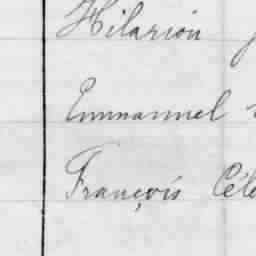 Hilarion
Emmanuel
François Cél